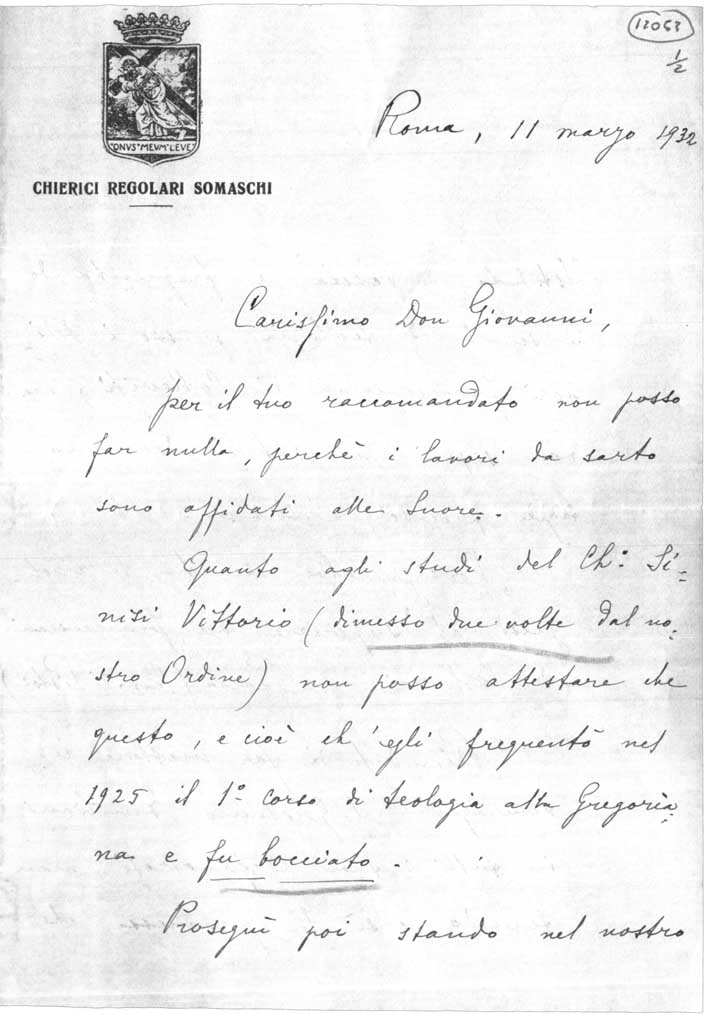 12053
1/2
ONVS MEVM LEVE
CHIERICI REGOLARI SOMASCHI
Roma, 11 marzo 1932
Carissimo Don Giovanni,
per il tuo raccomandato non posso
far nulla, perchè i lavori da sarto
sono affidati alle Suore.
Quanto agli studi del Ch.º Si=
nisi Vittorio (dimesso due volte dal no=
stro Ordine) non posso attestare che
questo, e cioè ch'egli frequentò nel
1925 il 1º corso di teologia alla Gregoria=
na e fu bocciato.
Proseguì poi stando nel nostro